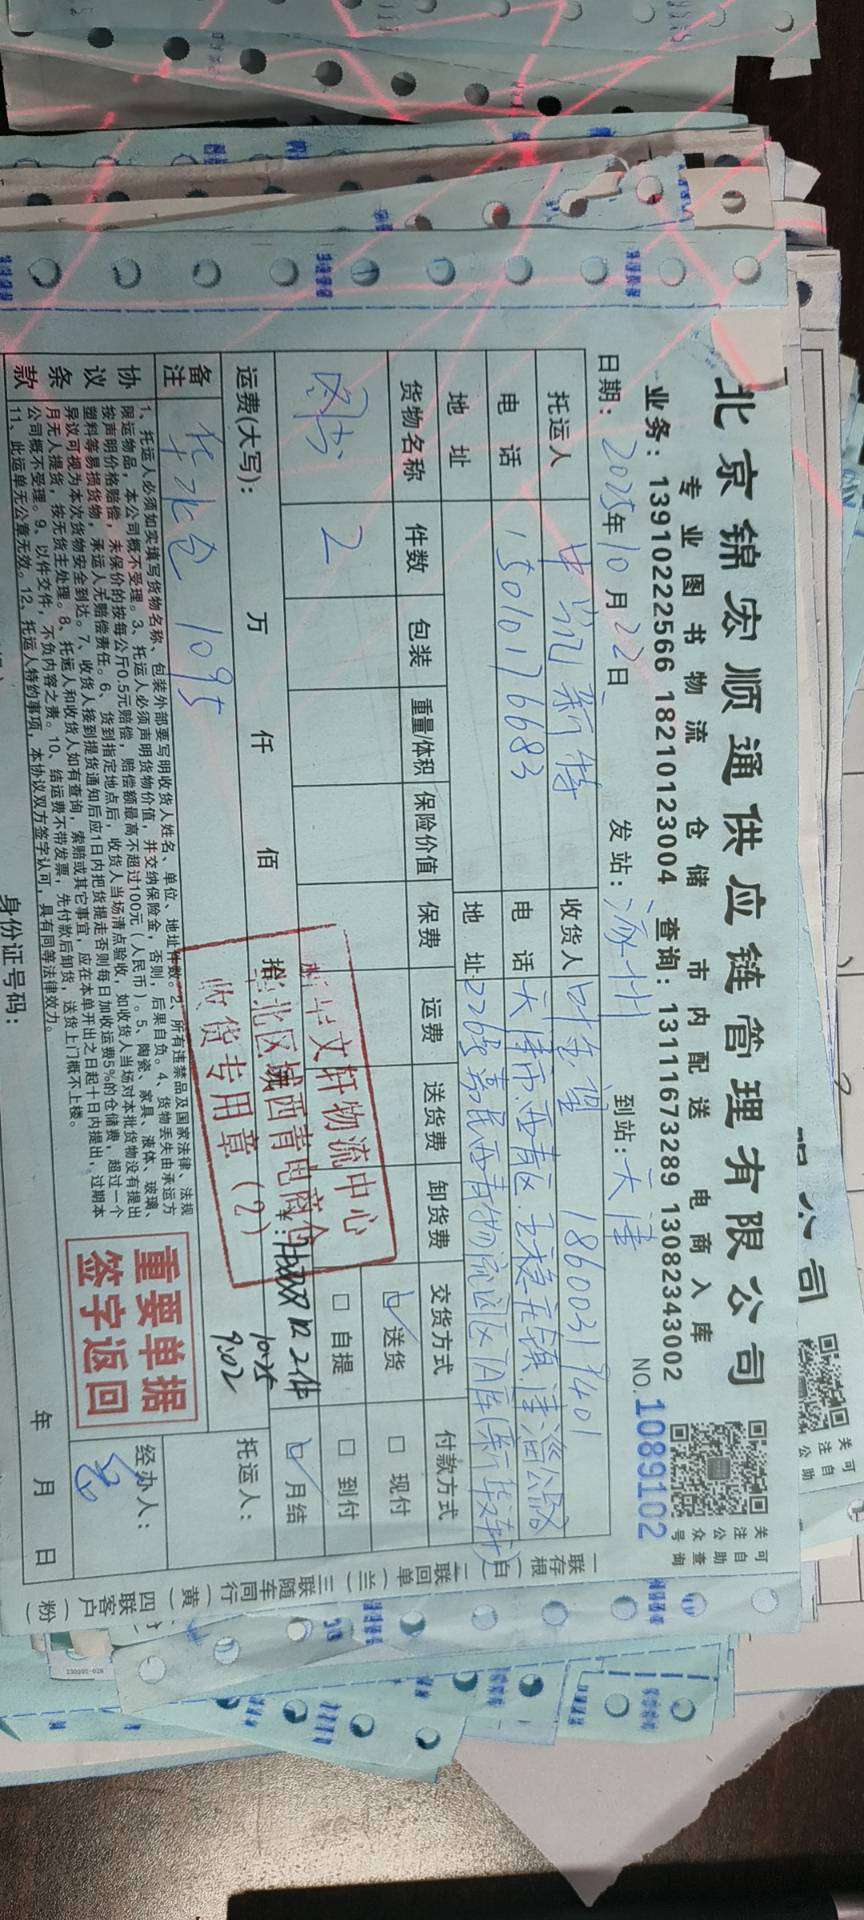 北京锦宏顺通供应链管理有限公司
专业图书物流 仓储 市内配送 电商入库
业务：13910222566 18210123004 查询：13111673289 13082343002
关注公众号
可自助查询
日期：2025年10月22日 发站：涿州 到站：天津 NO.1089102
托运人 中凯新特 收货人 18600319401
电话 15010176683 电话 天津市西青区王稳庄镇津淄公路
地址 地址 226号嘉民西青物流园区 库(新华文轩)
货物名称 件数 包装 重量/体积 保险价值 保费 运费 送货费 卸货费 交货方式 付款方式
图书 2 送货 现付
自提 到付
月结
运费(大写)： 万 仟 佰 拾
托运人：
备注 1095
新华文轩物流中心
华北区域西青电商仓
收货专用章（2）
2件
10.25
9:02
协议条款
1、托运人必须如实填写货物名称、包装外部要写明收货人姓名、单位、地址、件数。2、所有违禁品及国家法律、法规
限运物品，本公司概不受理。3、托运人必须声明货物价值，并交纳保险金，否则，后果自负。4、货物丢失由承运方
按声明价格赔偿，未保价的按每公斤0.5元赔偿，赔偿额最高不超过100元（人民币）。5、陶瓷、家具、液体、玻璃、
塑料等易损货物，承运人无赔偿责任。6、货到指定地点后，收货人当场清点验收，如收货人当场对本批货物没有提出
异议可视为本次货物安全到达。7、收货人接到提货通知后应1日内把货提走否则每日加收运费5%的仓储费，超过一个
月无人提货，按无货主处理。8、托运人和收货人如有查询，索赔或其它事宜，应在本单开出之日起十日内提出，过期本
公司概不受理。9、以件交件，不负内容之责。10、结运费不带发票，先付款后卸货，送货上门概不上楼。
11、此运单无公章无效。12、托运人特约事项，本协议双方签字认可，具有同等法律效力。
重要单据
签字返回
经办人：
身份证号码：
年 月 日
一联存根(白) 二联回单(兰) 三联随车同行(黄) 四联客户(粉)
公司
关注公
可自助